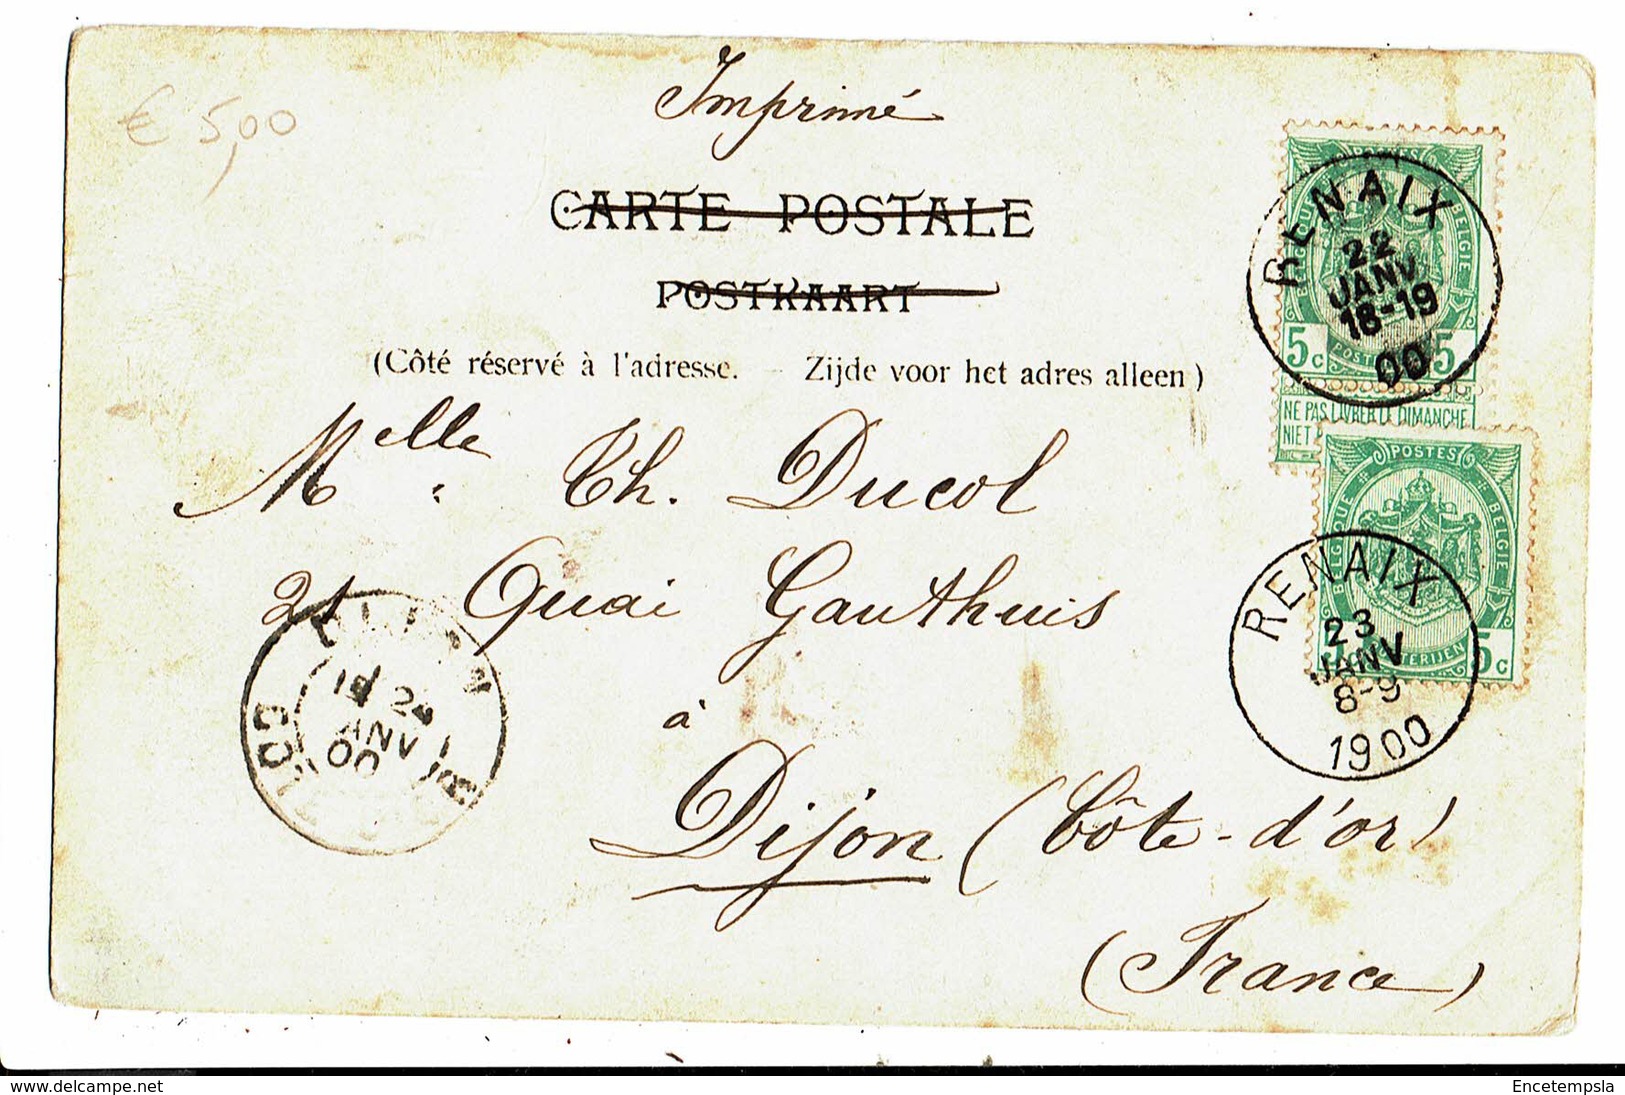 € 5,00
Imprimé
CARTE POSTALE
POSTKAART
(Côté réservé à l'adresse. — Zijde voor het adres alleen)
Melle Th. Ducol
21 Quai Gauthuis
à
Dijon (Côte-d'or)
(France)
POSTES
BELGIQUE BELGIE
5c 5
NE PAS LIVRER LE DIMANCHE
NIET
RENAIX
22
JANV
18-19
00
POSTES
BELGIQUE BELGIE
5c
RENAIX
23
JANV
8-9
1900
JANV
00
www.delcampe.net
Encetempsla